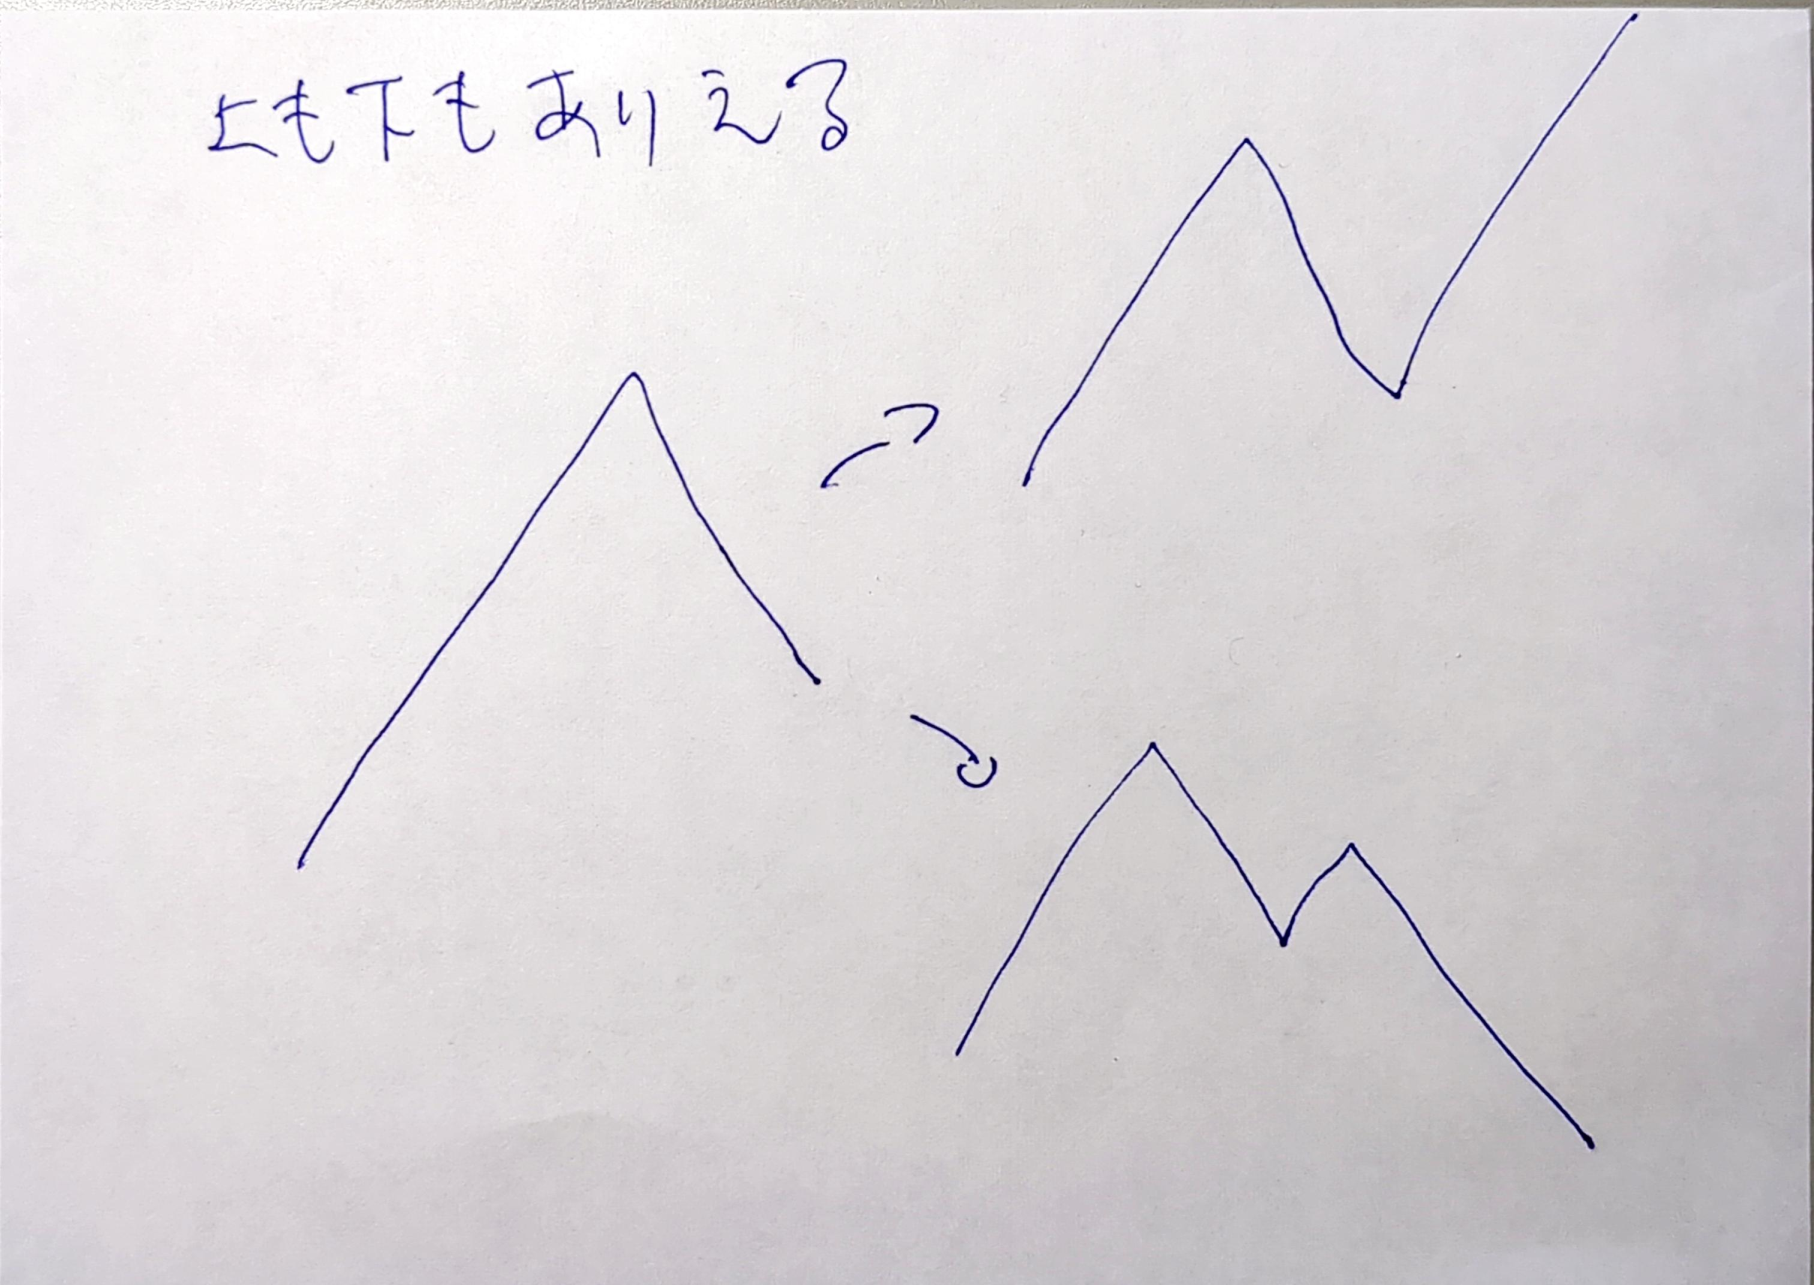 上も下もありえる